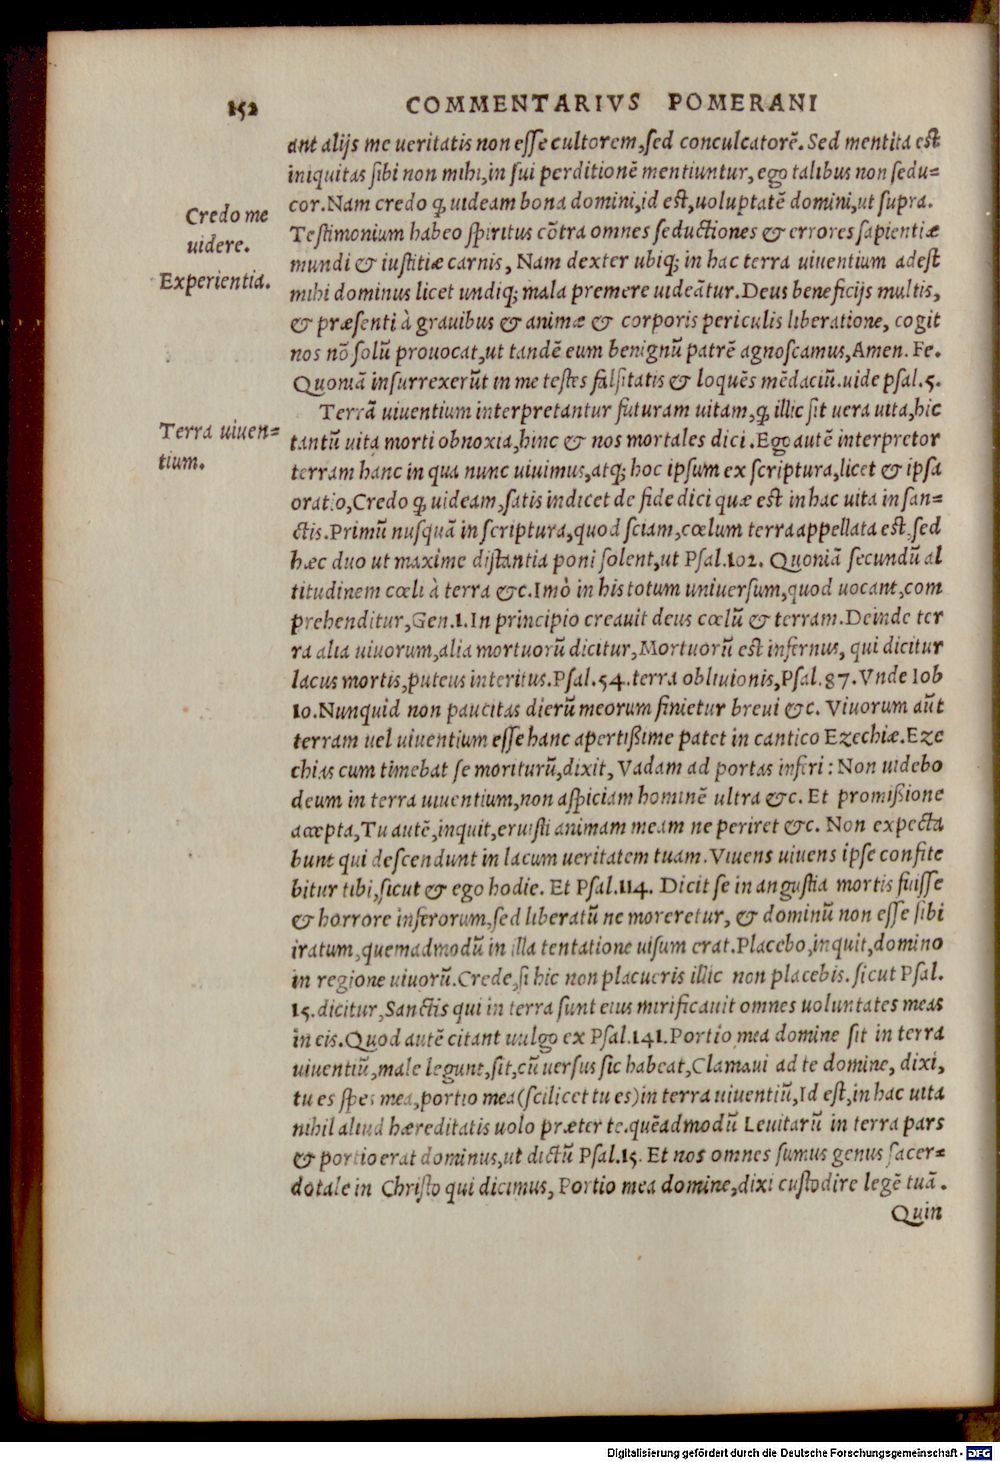 152 COMMENTARIVS POMERANI
ant alijs me ueritatis non esse cultorem, sed conculcatorē. Sed mentita est
iniquitas sibi non mihi, in sui perditionē mentiuntur, ego talibus non sedu=
cor. Nam credo ꝙ uideam bona domini, id est, uoluptatē domini, ut supra.
Credo me
uidere.
Testimonium habeo spiritus cōtra omnes seductiones & errores sapientiæ
mundi & iustitiæ carnis, Nam dexter ubiq; in hac terra uiuentium adest
Experientia.
mihi dominus licet undiq; mala premere uideātur. Deus beneficijs multis,
& præsenti à grauibus & animæ & corporis periculis liberatione, cogit
nos nō solū prouocat, ut tandē eum benignū patrē agnoscamus, Amen. Fe.
Quoniā insurrexerūt in me testes falsitatis & loquēs mēdaciū. uide psal. 5.
Terrā uiuentium interpretantur futuram uitam, ꝙ illic sit uera uita, hic
Terra uiuen=
tium.
tantū uita morti obnoxia, hinc & nos mortales dici. Ego autē interpretor
terram hanc in qua nunc uiuimus, atq; hoc ipsum ex scriptura, licet & ipsa
oratio, Credo ꝙ uideam, satis indicet de fide dici quæ est in hac uita in san=
ctis. Primū nusquā in scriptura, quod sciam, cœlum terra appellata est, sed
hæc duo ut maxime distantia poni solent, ut Psal. 102. Quoniā secundū al
titudinem cœli à terra &c. Imò in his totum uniuersum, quod uocant, com
prehenditur, Gen. 1. In principio creauit deus cœlū & terram. Deinde ter
ra alia uiuorum, alia mortuorū dicitur, Mortuorū est infernus, qui dicitur
lacus mortis, puteus interitus. Psal. 54. terra obliuionis, Psal. 87. Vnde Iob
10. Nunquid non paucitas dierū meorum finietur breui &c. Viuorum aūt
terram uel uiuentium esse hanc apertißime patet in cantico Ezechiæ. Eze
chias cum timebat se moriturū, dixit, Vadam ad portas inferi: Non uidebo
deum in terra uiuentium, non aspiciam hominē ultra &c. Et promißione
accepta, Tu autē, inquit, eruisti animam meam ne periret &c. Non expecta
bunt qui descendunt in lacum ueritatem tuam. Viuens uiuens ipse confite
bitur tibi, sicut & ego hodie. Et Psal. 114. Dicit se in angustia mortis fuisse
& horrore inferorum, sed liberatū ne moreretur, & dominū non esse sibi
iratum, quemadmodū in illa tentatione uisum erat. Placebo, inquit, domino
in regione uiuorū. Crede, si hic non placueris illic non placebis. sicut Psal.
15. dicitur, Sanctis qui in terra sunt eius mirificauit omnes uoluntates meas
in eis. Quod autē citant uulgo ex Psal. 141. Portio mea domine sit in terra
uiuentiū, male legunt, sit, cū uersus sic habeat, Clamaui ad te domine, dixi,
tu es spes mea, portio mea (scilicet tu es) in terra uiuentiū, Id est, in hac uita
nihil aliud hæreditatis uolo præter te. quēadmodū Leuitarū in terra pars
& portio erat dominus, ut dictū Psal. 15. Et nos omnes sumus genus sacer=
dotale in Christo qui dicimus, Portio mea domine, dixi custodire legē tuā.
Quin
Digitalisierung gefördert durch die Deutsche Forschungsgemeinschaft - DFG